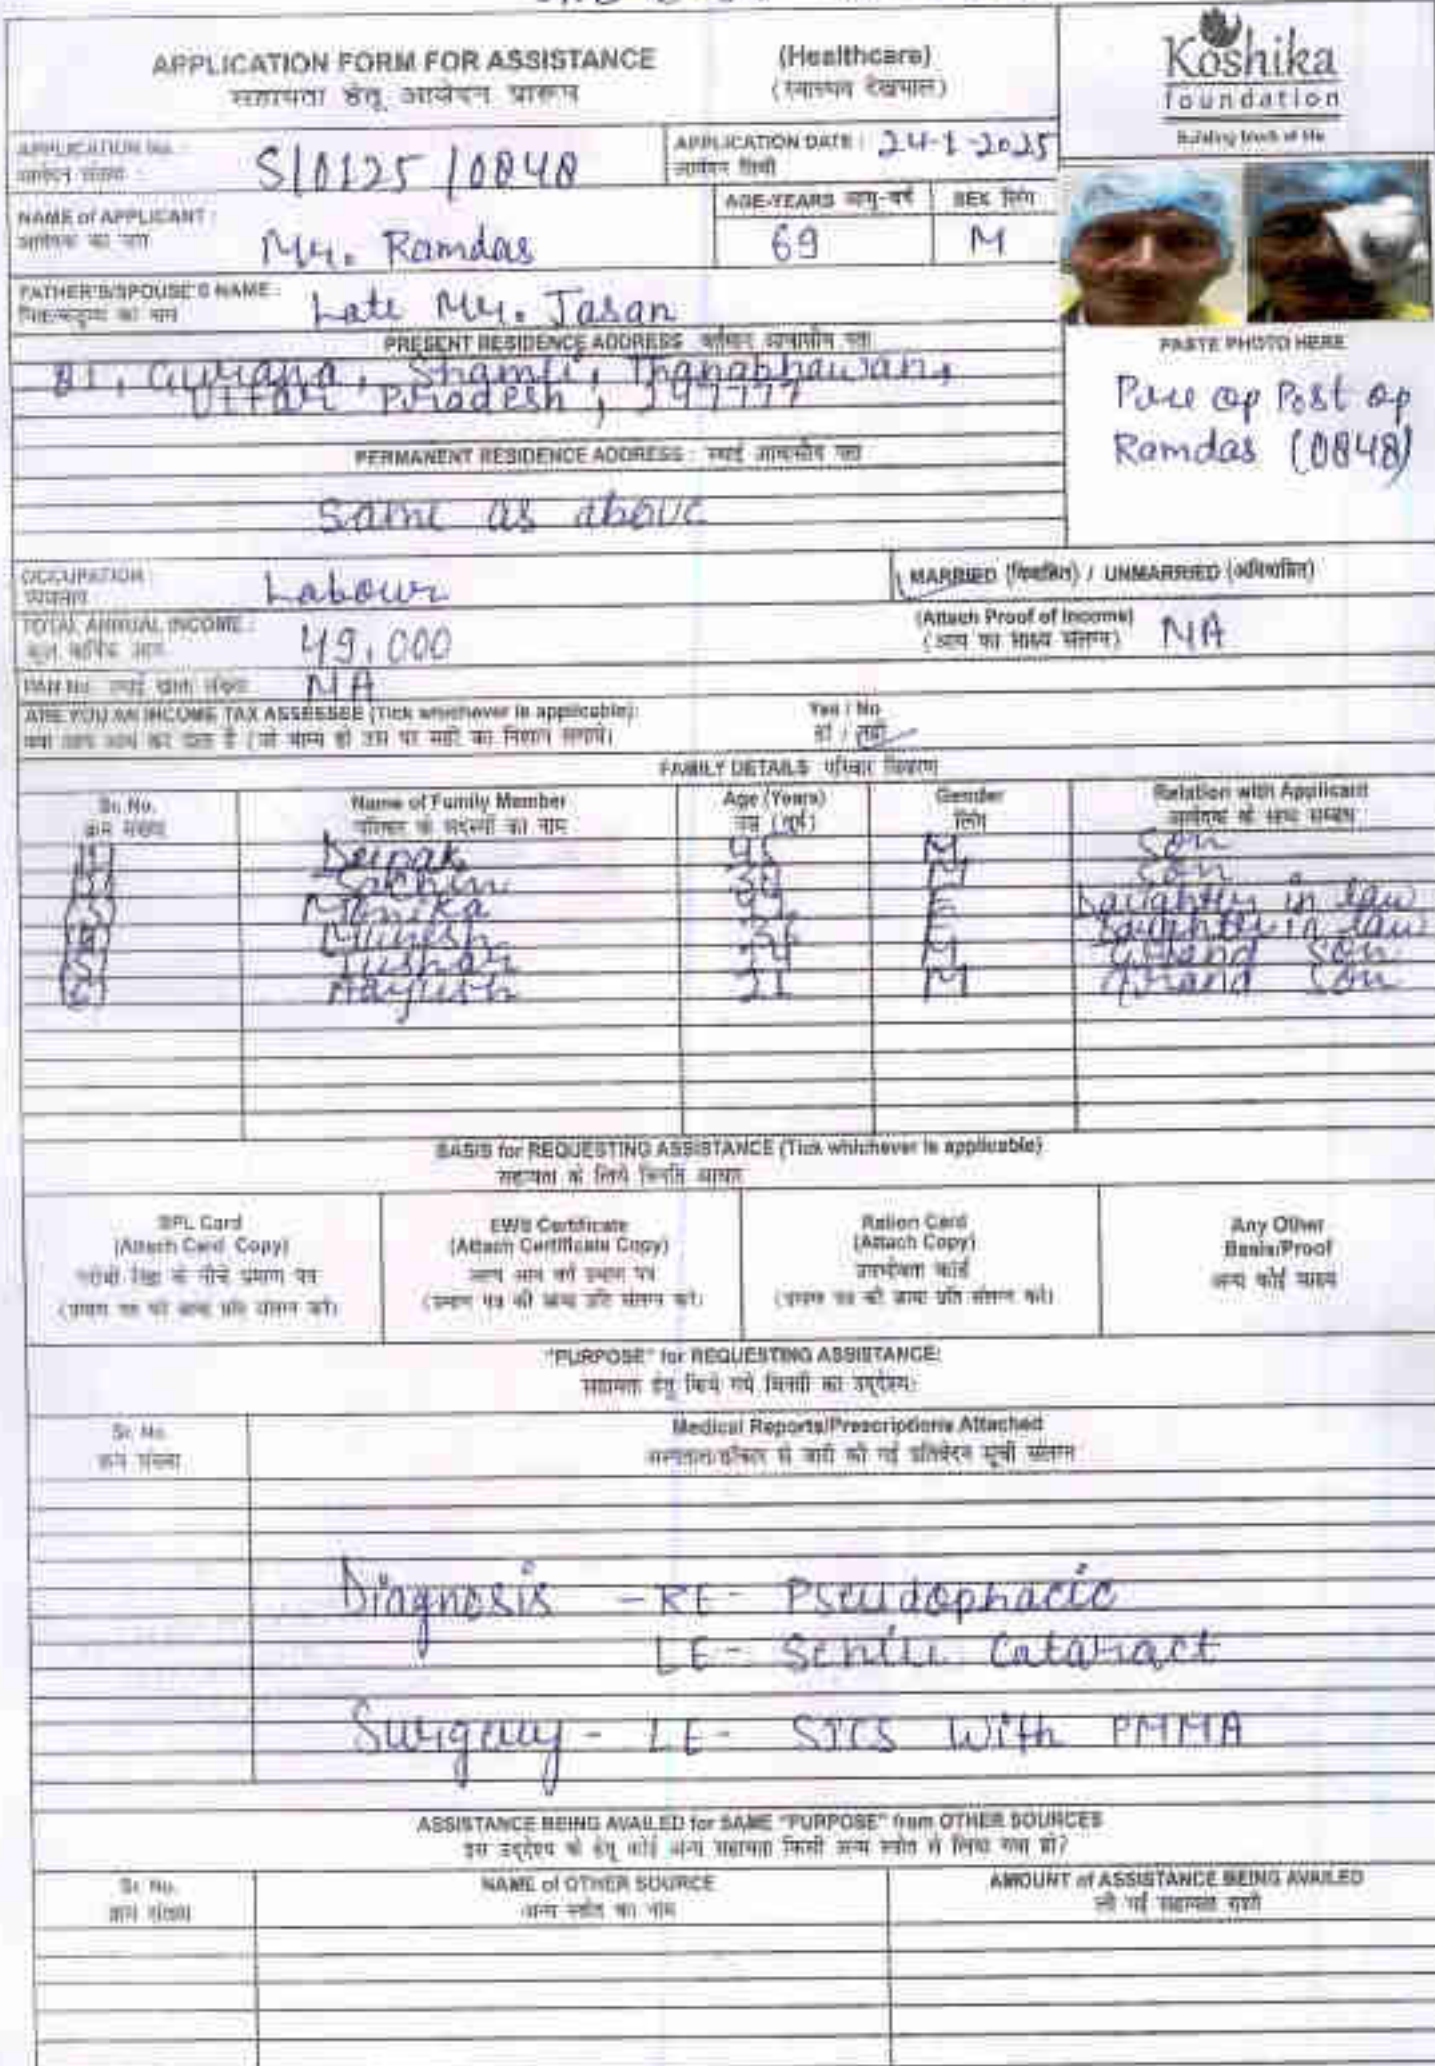 APPLICATION FORM FOR ASSISTANCE
(Healthcare)
सहायता हेतु आवेदन प्रारूप
(स्वास्थ्य देखभाल)
Koshika
foundation
Building block of life
APPLICATION No. :
आवेदन संख्या :
S/0125/0848
APPLICATION DATE : 24-1-2025
आवेदन तिथी
NAME of APPLICANT :
आवेदक का नाम
Mr. Ramdas
AGE-YEARS आयु-वर्ष
69
SEX लिंग
M
FATHER'S/SPOUSE'S NAME :
Late Mr. Jasan
PRESENT RESIDENCE ADDRESS वर्तमान आवासीय पता
Shamli, Thanabhawan,
Uttar Pradesh, 247777
PASTE PHOTO HERE
Pre op Post op
Ramdas (0848)
PERMANENT RESIDENCE ADDRESS : स्थाई आवासीय पता
Same as above
OCCUPATION :
व्यवसाय
Labour
MARRIED (विवाहित) / UNMARRIED (अविवाहित)
TOTAL ANNUAL INCOME :
कुल वार्षिक आय
49,000
(Attach Proof of Income)
(आय का साक्ष्य संलग्न)
NA
PAN No. स्थाई खाता संख्या
NA
ARE YOU AN INCOME TAX ASSESSEE (Tick whichever is applicable):
Yes / No
हाँ / नहीं
FAMILY DETAILS परिवार विवरण
Sr. No.
क्रम संख्या
Name of Family Member
परिवार के सदस्यों का नाम
Age (Years)
उम्र (वर्ष)
Gender
लिंग
Relation with Applicant
आवेदक के साथ सम्बंध
(1) Deepak 45 M Son
(2) Sachin M Son
(3) Monika F Daughter in law
(4) Munesh F Daughter in law
(5) Tushar M Grand Son
(6) Aayush 21 M Grand Son
BASIS for REQUESTING ASSISTANCE (Tick whichever is applicable)
सहायता के लिये विनति आधार
BPL Card
(Attach Card Copy)
गरीबी रेखा के नीचे प्रमाण पत्र
EWS Certificate
(Attach Certificate Copy)
अल्प आय वर्ग प्रमाण पत्र
Ration Card
(Attach Copy)
उपभोक्ता कार्ड
Any Other
Basis/Proof
अन्य कोई साक्ष्य
"PURPOSE" for REQUESTING ASSISTANCE:
सहायता हेतु किये गये विनती का उद्देश्य:
Sr. No.
क्रम संख्या
Medical Reports/Prescriptions Attached
Diagnosis - RE - Pseudophacic
LE - Senile Cataract
Surgery - LE - SICS With PMMA
ASSISTANCE BEING AVAILED for SAME "PURPOSE" from OTHER SOURCES
इस उद्देश्य के हेतु कोई अन्य सहायता किसी अन्य स्त्रोत से लिया गया हो?
Sr. No.
क्रम संख्या
NAME of OTHER SOURCE
अन्य स्त्रोत का नाम
AMOUNT of ASSISTANCE BEING AVAILED
ली गई सहायता राशी